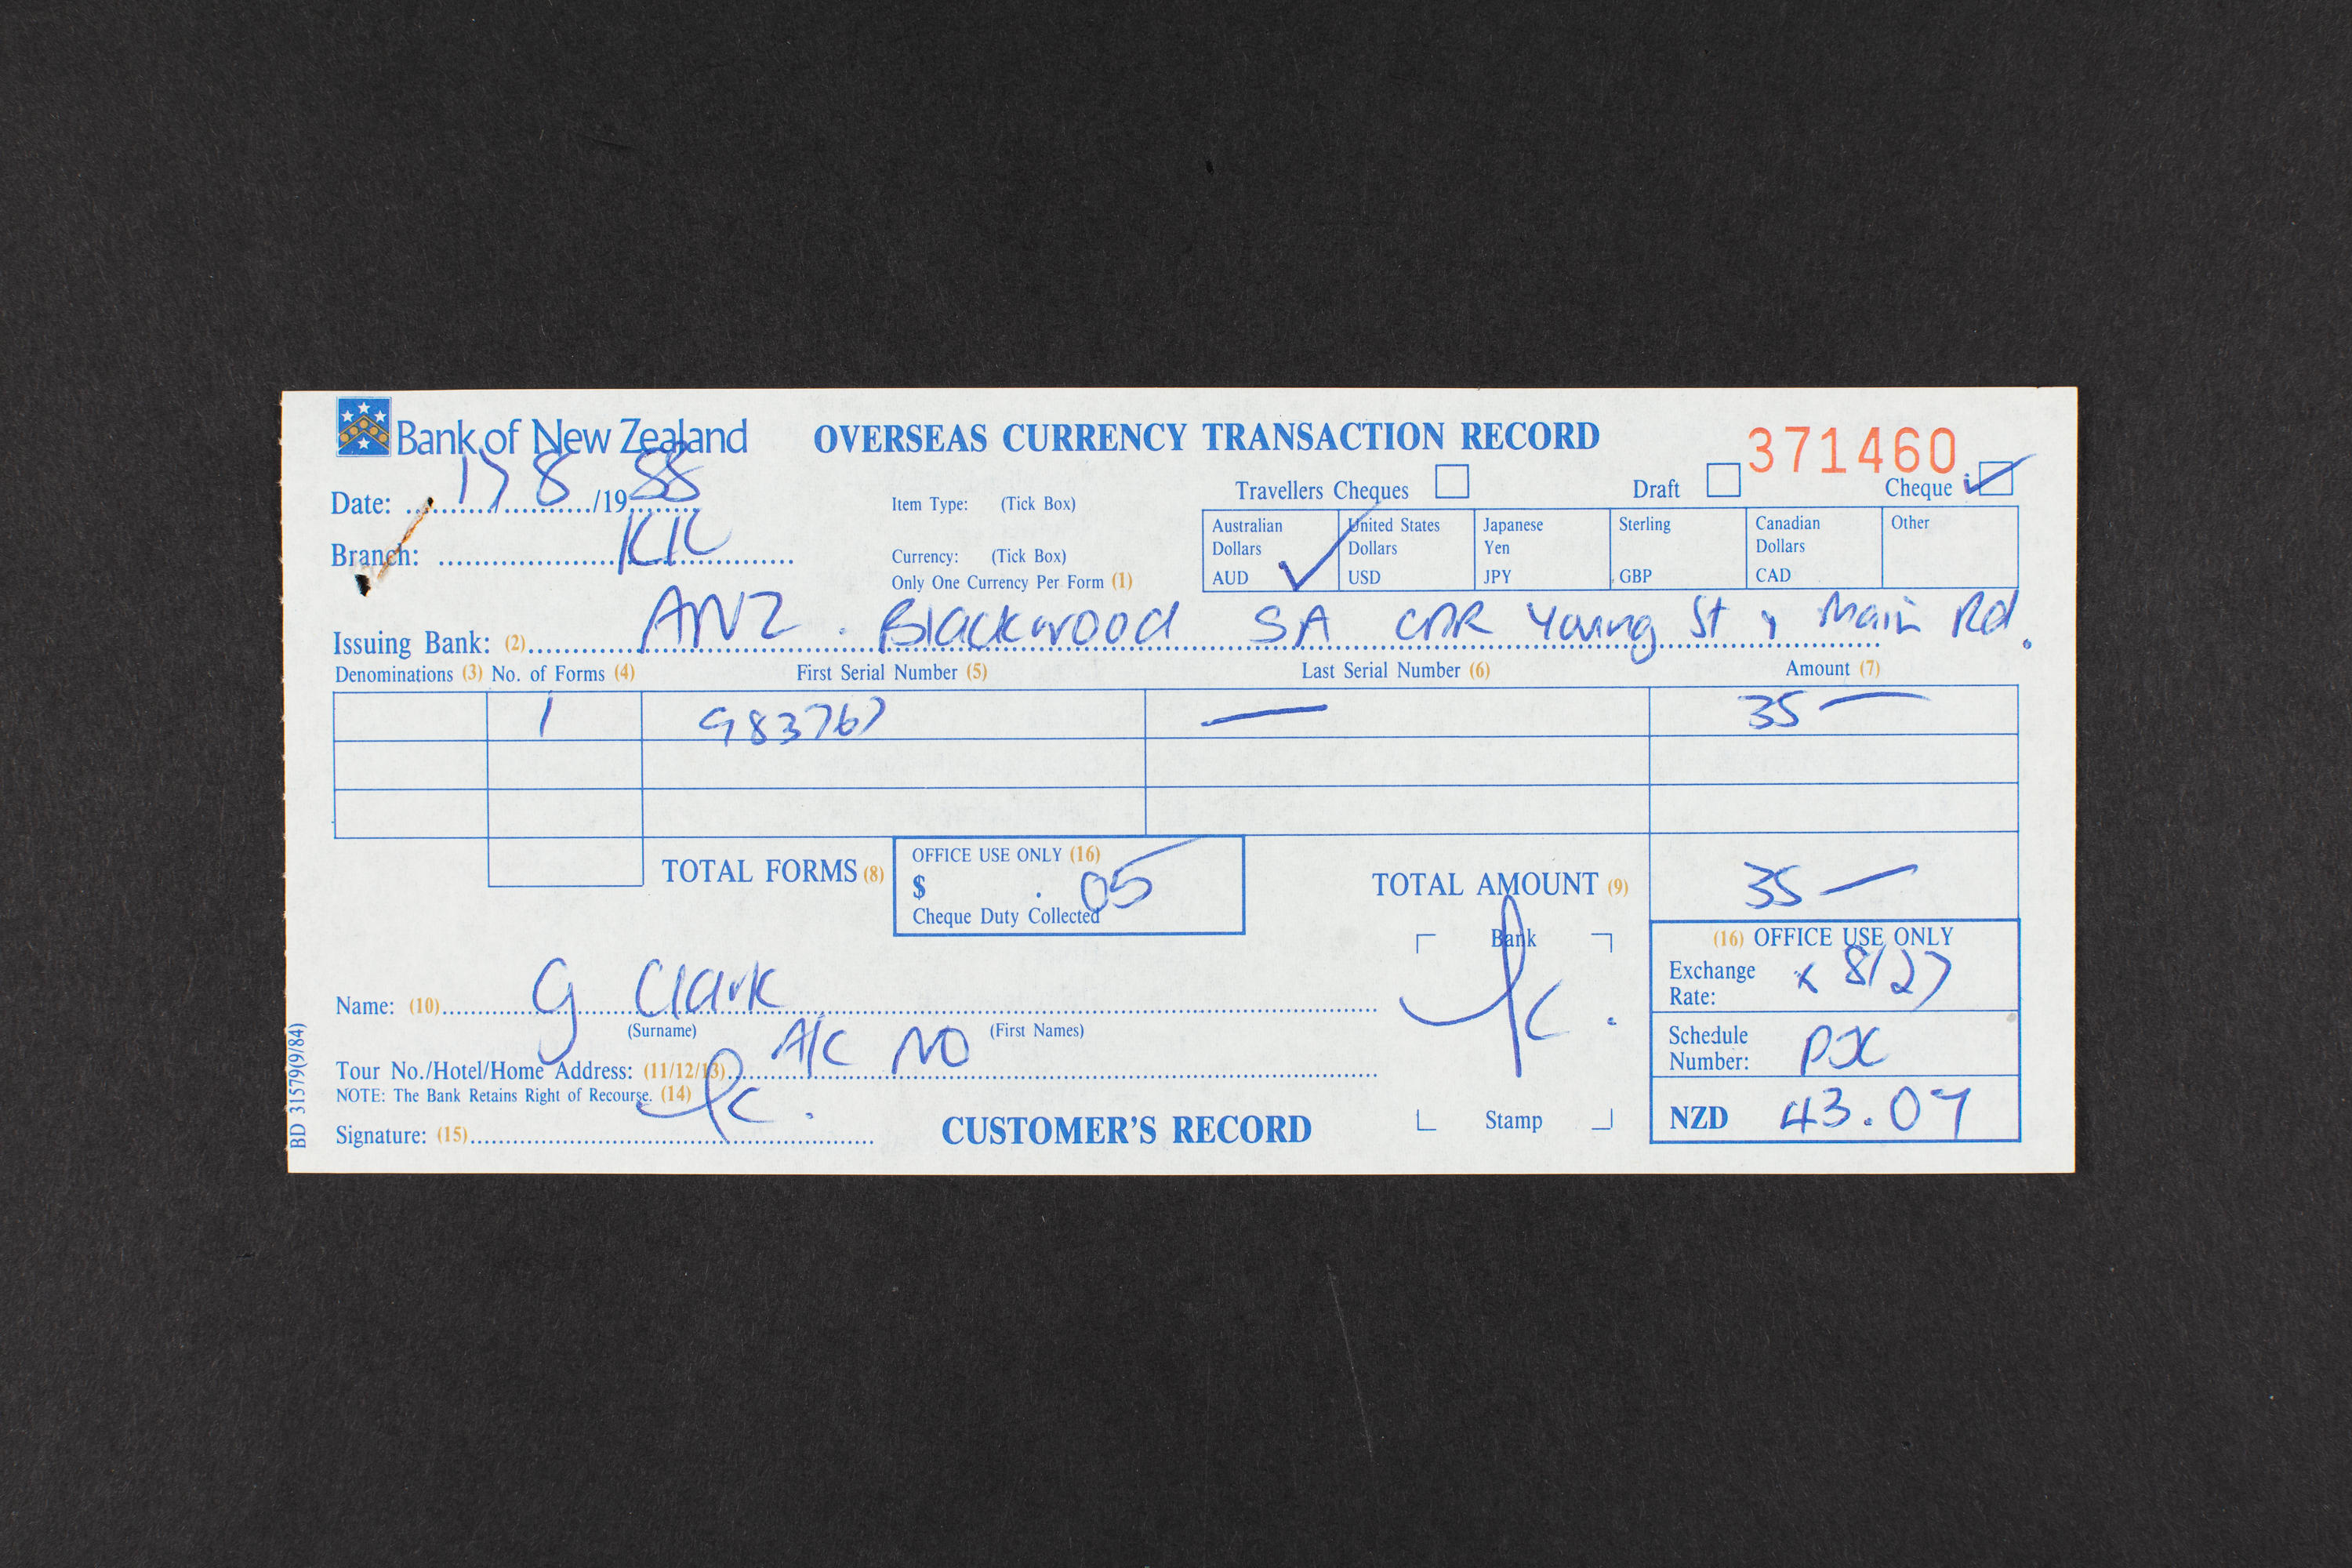 Bank of New Zealand OVERSEAS CURRENCY TRANSACTION RECORD 371460
Date: 17/8/1988
Item Type: (Tick Box) Travellers Cheques Draft Cheque ✓
Branch: KK
Currency: (Tick Box)
Only One Currency Per Form (1)
Australian Dollars AUD ✓
United States Dollars USD
Japanese Yen JPY
Sterling GBP
Canadian Dollars CAD
Other
Issuing Bank: (2) ANZ. Blackwood SA CNR Young St , Main Rd.
Denominations (3) No. of Forms (4) First Serial Number (5) Last Serial Number (6) Amount (7)
1 983767 — 35 —
TOTAL FORMS (8)
OFFICE USE ONLY (16)
$ . 05
Cheque Duty Collected
TOTAL AMOUNT (9) 35 —
Bank
Stamp
(16) OFFICE USE ONLY
Exchange Rate: x 8127
Schedule Number:
NZD 43.07
Name: (10) G Clark
(Surname) (First Names)
A/C NO
Tour No./Hotel/Home Address: (11/12/13)
NOTE: The Bank Retains Right of Recourse. (14)
Signature: (15)
CUSTOMER'S RECORD
BD 31579(9/84)